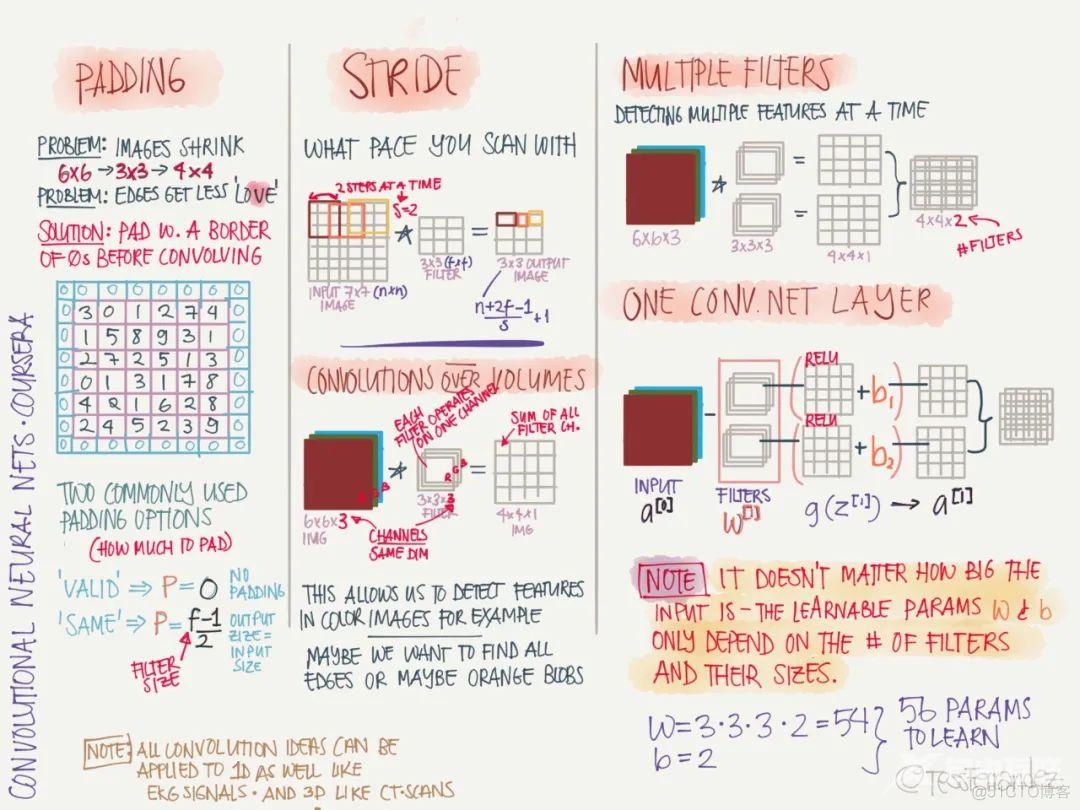 CONVOLUTIONAL NEURAL NETS · COURSERA
PADDING
PROBLEM: IMAGES SHRINK
6x6 → 3x3 → 4x4
PROBLEM: EDGES GET LESS 'LOVE'
SOLUTION: PAD W. A BORDER
OF ØS BEFORE CONVOLVING
0 0 0 0 0 0 0 0
0 3 0 1 2 7 4 0
0 1 5 8 9 3 1 0
0 2 7 2 5 1 3 0
0 0 1 3 1 7 8 0
0 4 2 1 6 2 8 0
0 2 4 5 2 3 9 0
0 0 0 0 0 0 0 0
TWO COMMONLY USED
PADDING OPTIONS
(HOW MUCH TO PAD)
'VALID' ⇒ P = 0 NO
PADDING
'SAME' ⇒ P = f-1/2 OUTPUT
SIZE =
INPUT
SIZE
FILTER
SIZE
NOTE: ALL CONVOLUTION IDEAS CAN BE
APPLIED TO 1D AS WELL LIKE
EKG SIGNALS · AND 3D LIKE CT-SCANS
STRIDE
WHAT PACE YOU SCAN WITH
2 STEPS AT A TIME
S=2
* =
INPUT 7x7 (nxn)
IMAGE
3x3 (fxf)
FILTER
3x3 OUTPUT
IMAGE
n+2f-1/s +1
CONVOLUTIONS OVER VOLUMES
EACH
FILTER OPERATES
ON ONE CHANNEL
SUM OF ALL
FILTER CH.
* =
R G B
R G B
6x6x3
IMG
3x3x3
FILTER
4x4x1
IMG
CHANNELS
SAME DIM
THIS ALLOWS US TO DETECT FEATURES
IN COLOR IMAGES FOR EXAMPLE
MAYBE WE WANT TO FIND ALL
EDGES OR MAYBE ORANGE BLOBS
MULTIPLE FILTERS
DETECTING MULTIPLE FEATURES AT A TIME
* =
=
6x6x3
3x3x3
4x4x1
4x4x2
#FILTERS
ONE CONV. NET LAYER
(RELU + b1)
(RELU + b2)
INPUT
a[0]
FILTERS
W[1]
g(z[1]) → a[1]
NOTE IT DOESN'T MATTER HOW BIG THE
INPUT IS - THE LEARNABLE PARAMS W & b
ONLY DEPEND ON THE # OF FILTERS
AND THEIR SIZES.
W = 3·3·3·2 = 54
b = 2
56 PARAMS
TO LEARN
@TessFerrandez
@51CTO博客